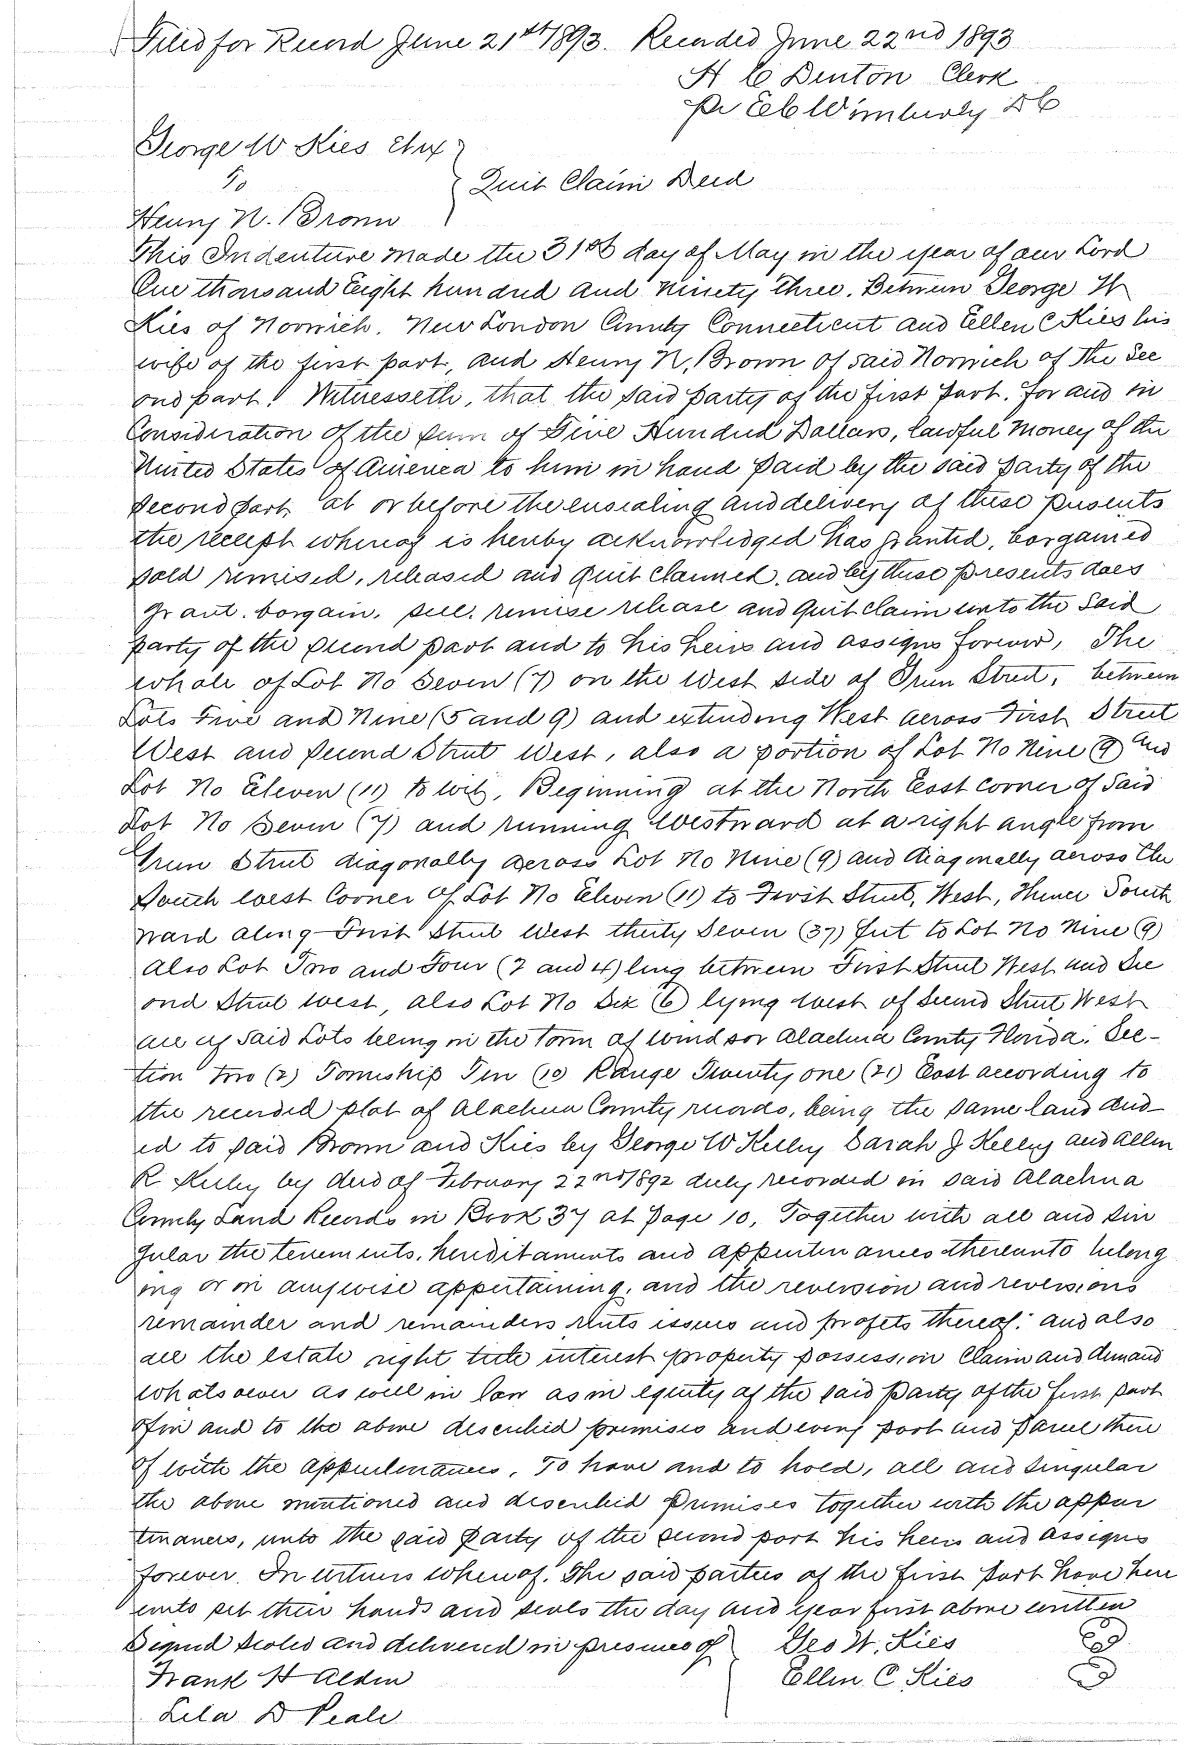 Filed for Record June 21st 1893. Recorded June 22nd 1893
H C Denton Clerk
Pr E C Wimberly D C
George W Kies Etux
To
Quit Claim Deed
Henry N. Brown
This Indenture made the 31st day of May in the year of our Lord
One thousand Eight hundred and ninety three. Between George W
Kies of Norwich. New London County Connecticut and Ellen C Kies his
wife of the first part, and Henry N. Brown of said Norwich of the Sec
ond part. Witnesseth, that the said party of the first part. for and in
Consideration of the sum of Five Hundred Dollars, lawful money of the
United States of America to him in hand paid by the said party of the
second part at or before the ensealing and delivery of these presents
the receipt whereof is hereby acknowledged has granted, bargained
sold remised, released and quit claimed, and by these presents does
grant. bargain. sell. remise release and quit claim unto the said
party of the second part and to his heirs and assigns forever, The
whole of Lot No Seven (7) on the West side of Grun Street, between
Lots Five and Nine (5 and 9) and extending West across First Street
West and Second Street West, also a portion of Lot No Nine (9) and
Lot No Eleven (11) to wit, Beginning at the North East corner of said
Lot No Seven (7) and running Westward at a right angle from
Grun Street diagonally across Lot No Nine (9) and diagonally across the
South west Corner of Lot No Eleven (11) to First Street, West, thence South
ward along First Street West thirty Seven (37) feet to Lot No Nine (9)
Also Lot Two and Four (2 and 4) ling between First Street West and Sec
ond Street west, also Lot No Six (6) lying west of Second Street West
all of said Lots being in the town of Windsor Alachua County Florida. Sec-
tion two (2) Township Ten (10) Range Twenty one (21) East according to
the recorded plat of Alachua County records, being the same land deed-
ed to said Brown and Kies by George W Kelley Sarah J Kelley and Allen
R Kelley by deed of February 22nd 1892 duly recorded in said Alachua
County Land Records in Book 37 at page 10, Together with all and Sin
gular the tenements. hereditaments and appurtenances thereunto belong
ing or in anywise appertaining, and the reversion and reversions
remainder and remainders rents issues and profits thereof. and also
all the Estate right title interest property possession Claim and demand
whatsoever as well in law as in equity of the said party of the first part
of in and to the above described premises and every part and parcel there
of with the appurtenances. To have and to hold, all and singular
the above mentioned and described premises together with the appur
tenances, unto the said party of the second part his heirs and assigns
forever. In witness whereof. The said parties of the first part have here
unto set their hands and seals the day and year first above written
Signed sealed and delivered in presence of Geo W. Kies
Frank H Alden Ellen C. Kies
Lila D Peale